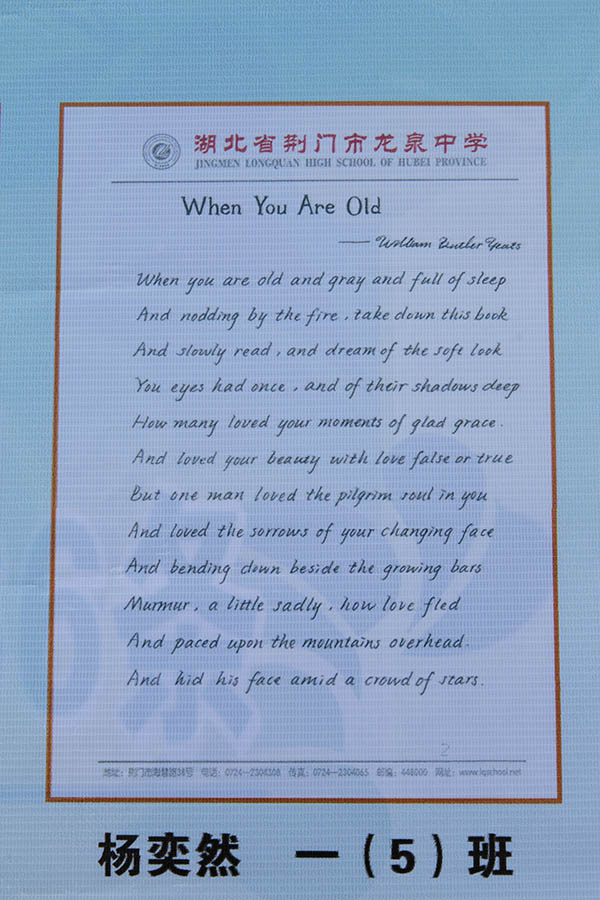 湖北省荆门市龙泉中学
JINGMEN LONGQUAN HIGH SCHOOL OF HUBEI PROVINCE
When You Are Old
—— William Butler Yeats
When you are old and gray and full of sleep
And nodding by the fire , take down this book
And slowly read , and dream of the soft look
You eyes had once , and of their shadows deep
How many loved your moments of glad grace .
And loved your beauty with love false or true
But one man loved the pilgrim soul in you
And loved the sorrows of your changing face
And bending down beside the growing bars
Murmur , a little sadly , how love fled
And paced upon the mountains overhead .
And hid his face amid a crowd of stars .
2
地址：荆门市海慧路38号 电话：0724—2304308 传真：0724—2304065 邮编：448000 网址：www.lqschool.net
杨奕然 一（5）班